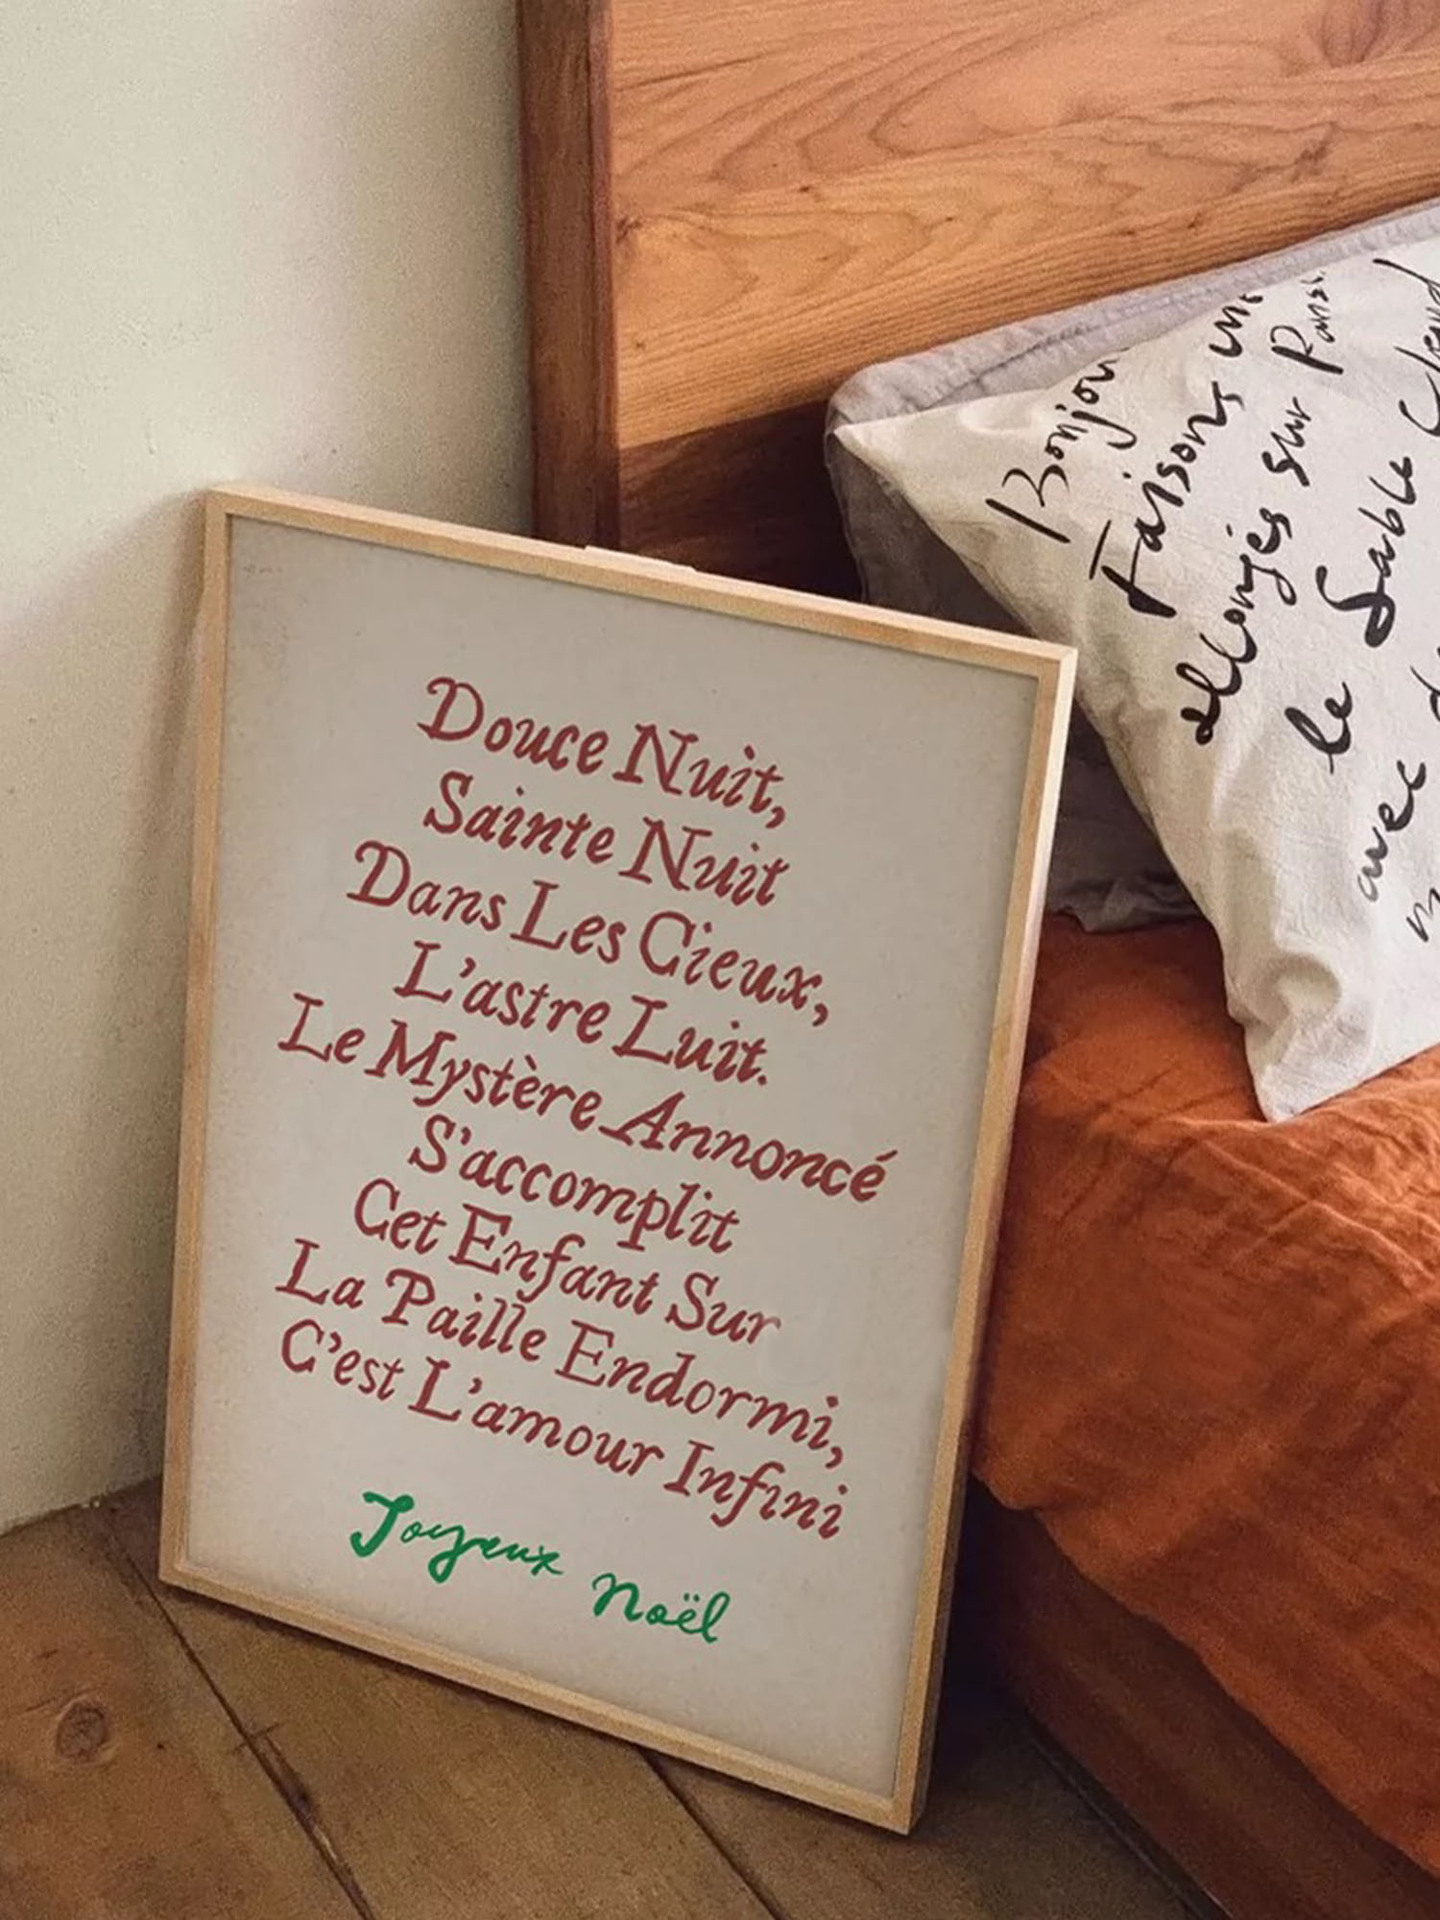 Douce Nuit,
Sainte Nuit
Dans Les Cieux,
L'astre Luit.
Le Mystère Annoncé
S'accomplit
Cet Enfant Sur
La Paille Endormi,
C'est L'amour Infini
Joyeux Noël
Faisons
allongés sur
le Sable
avec